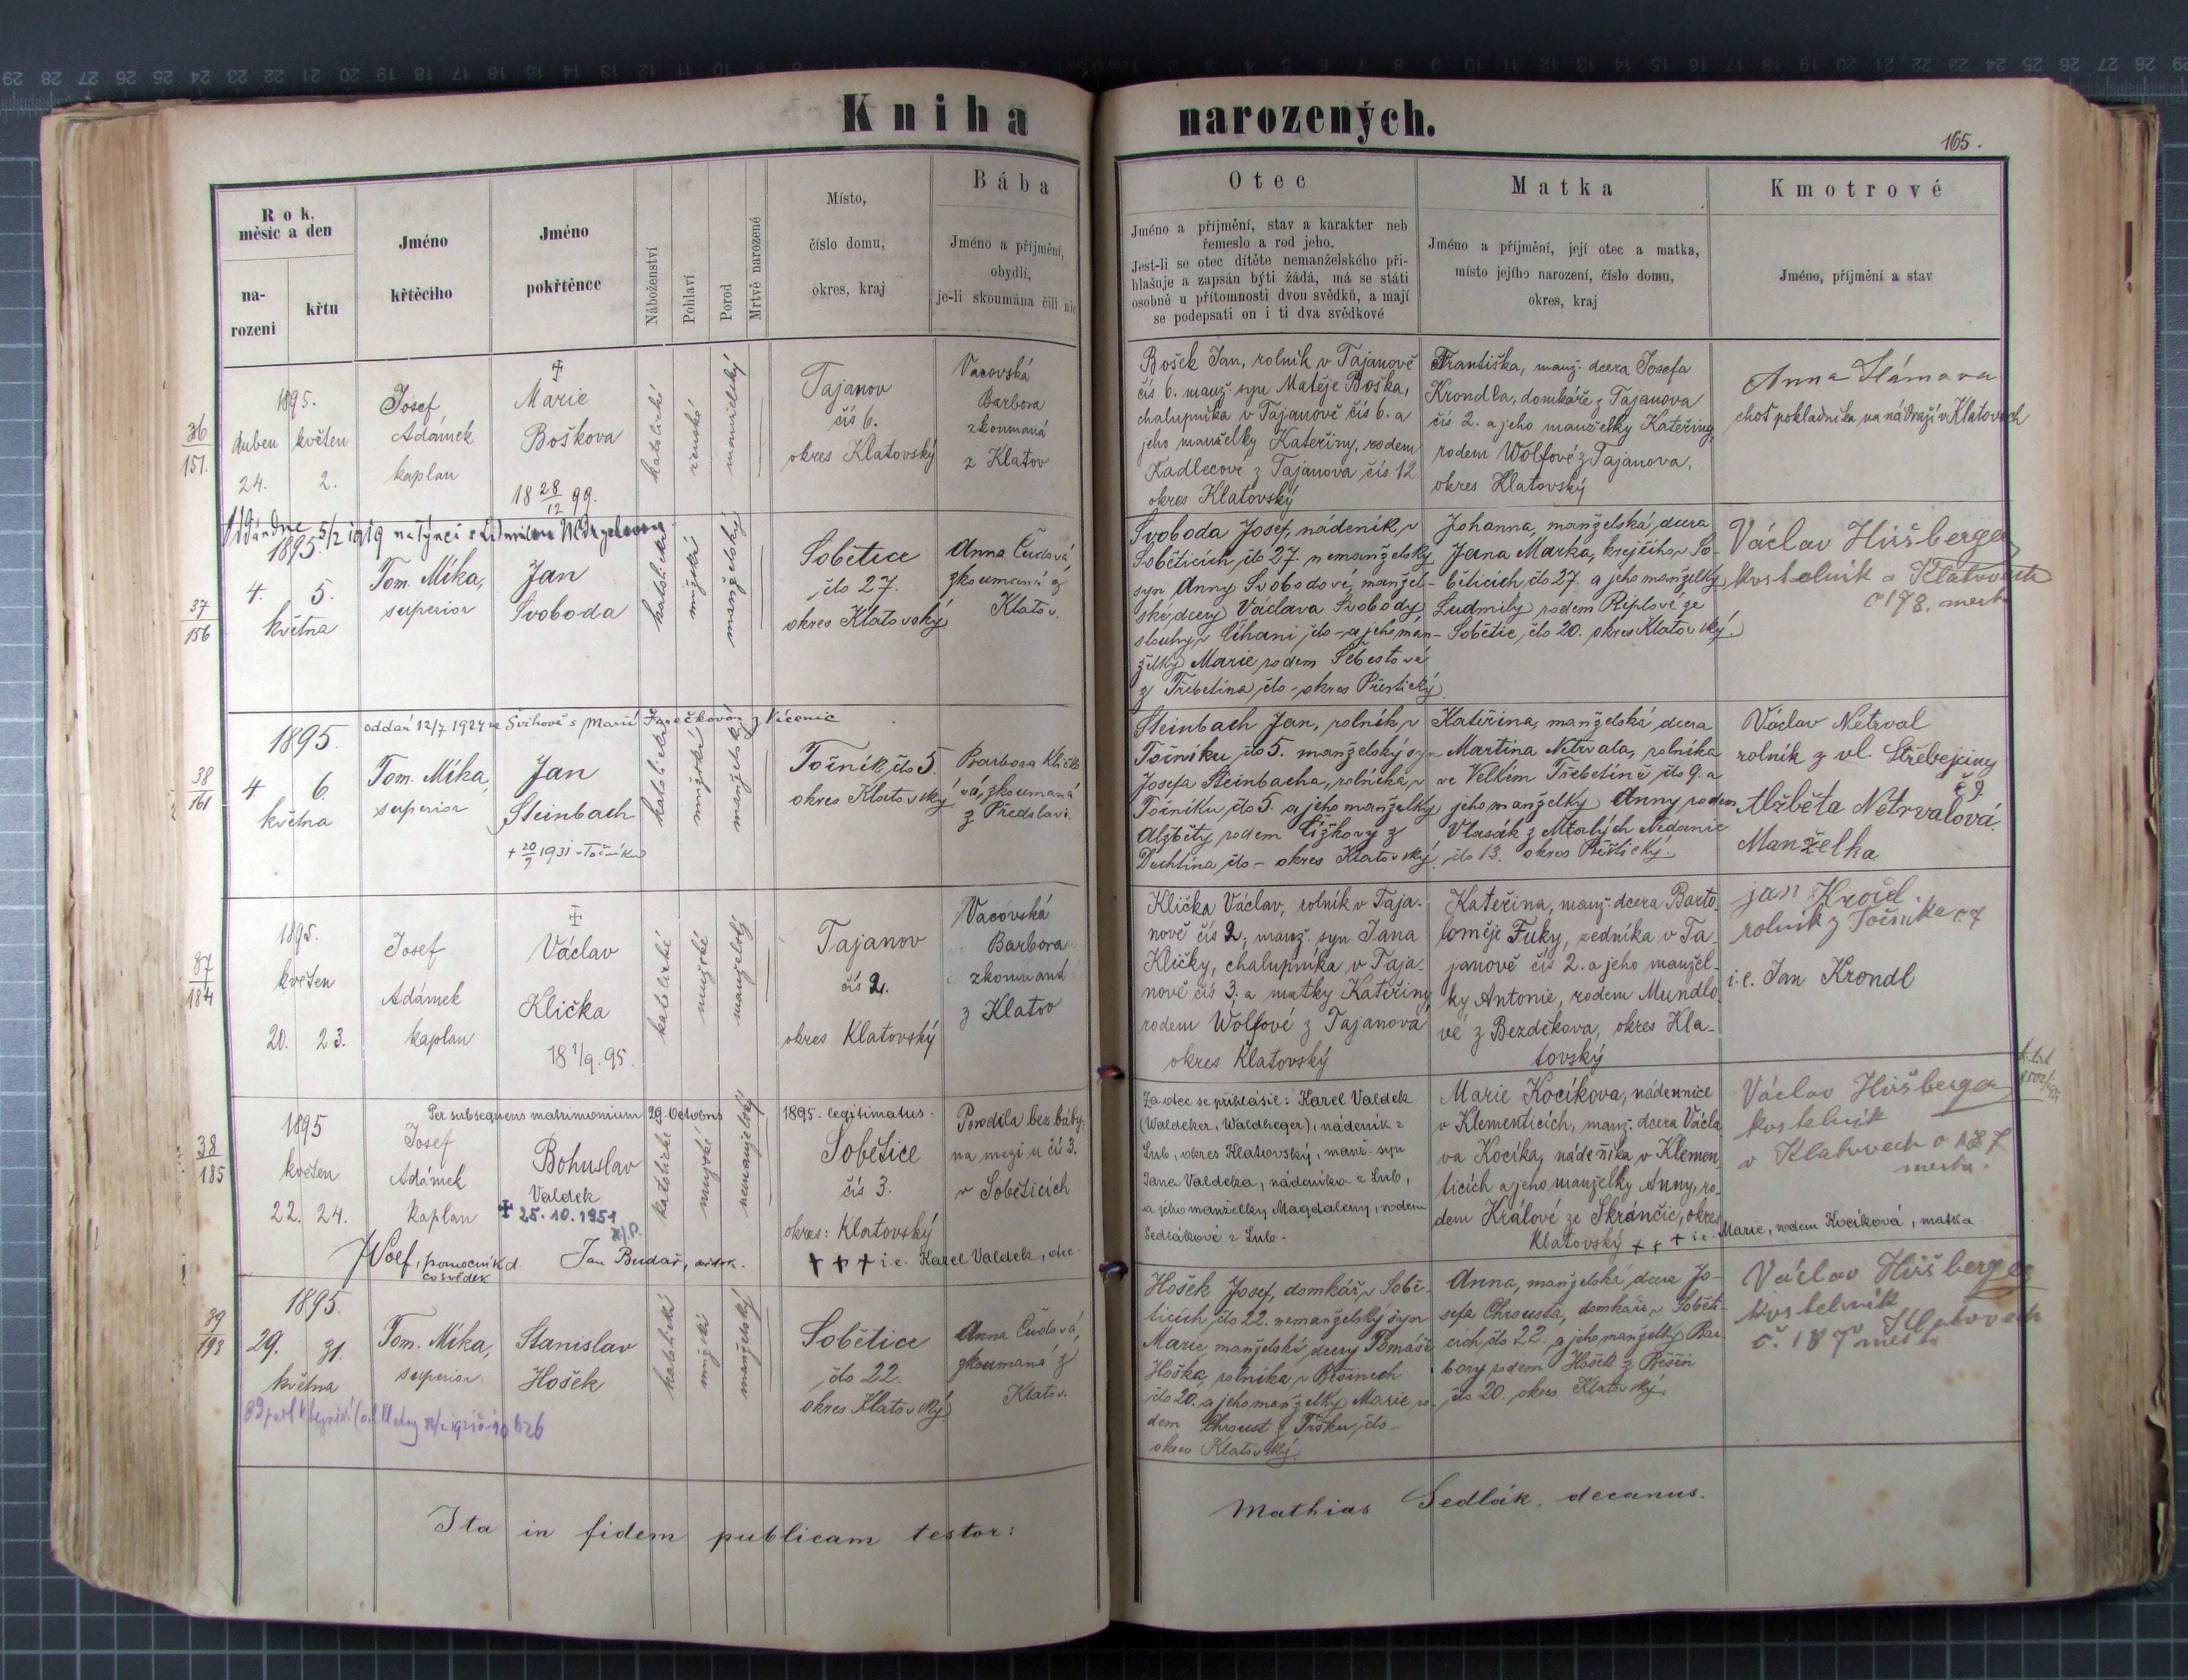 Kniha narozených.
165.
Rok, měsíc a den
na-
rození
křtu
Jméno
křtícího
Jméno
pokřtěnce
Náboženství
Pohlaví
Porod
Mrtvě narozené
Místo,
číslo domu,
okres, kraj
Bába
Jméno a příjmění,
obydlí,
je-li skoumána čili nic
Otec
Jméno a příjmění, stav a karakter neb
řemeslo a rod jeho.
Jest-li se otec dítěte nemanželského při-
hlašuje a zapsán býti žádá, má se státi
osobně u přítomnosti dvou svědků, a mají
se podepsati on i ti dva svědkové
Matka
Jméno a příjmění, její otec a matka,
místo jejího narození, číslo domu,
okres, kraj
Kmotrové
Jméno, příjmění a stav
36
151.
1895.
duben květen
24. 2.
Josef
Adámek
kaplan
Marie
Boškova
18 28/12 99.
katolické
ženské
manželský
Tajanov
čís 6.
okres Klatovský
Vacovská
Barbora
zkoumaná
z Klatov
Bošek Jan, rolník v Tajanově
čís 6. manž. syn Matěje Boška,
chalupníka v Tajanově čís 6. a
jeho manželky Kateřiny, rodem
Kadlecové z Tajanova čís 12.
okres Klatovský
Františka, manž. dcera Josefa
Krondla, domkáře z Tajanova
čís 2. a jeho manželky Kateřiny,
rodem Wolfové z Tajanova,
okres Klatovský
Anna Hámova
choť pokladníka na nádraží v Klatovech
37
156
5/2 1919
1895.
4. 5.
května
Tom. Míka,
superior
Jan
Svoboda
katolické
mužské
manželský
Sobětice
čto 27.
okres Klatovský
Anna Čudová,
zkoumaná z
Klatov.
Svoboda Josef, nádeník v
Soběticích čto 27. nemanželský
syn Anny Svobodové, manžel-
ské dcery Václava Svobody
sluhy v Číhani čto - a jeho man-
želky Marie rodem Šebestové
z Třebetína čto - okres Přestický.
Johanna, manželská dcera
Jana Marka, krejčího v So-
běticích čto 27. a jeho manželky
Ludmily rodem Riplové ze
Sobětic, čto 20. okres Klatovský.
Václav Hüšberger
kostelník v Klatovech
38
161
oddán 12/7 1924 ve Švihově s Marií z Vícenic
1895.
4 6.
května
Tom. Míka,
superior
Jan
Steinbach
+ 20/9 1931 v Točníku
katolické
mužské
manželský
Točník, čto 5.
okres Klatovský
Barbora Kličko-
vá, zkoumaná
z Předslavi.
Steinbach Jan, rolník v
Točníku čto 5. manželský syn
Josefa Steinbacha, rolníka v
Točníku čto 5. a jeho manželky
Alžběty rodem Čížkovy z
Dechtína čto - okres Klatovský.
Kateřina, manželská dcera
Martina Netrvala, rolníka
ve Velkém Třebetíně čto 9. a
jeho manželky Anny rodem
Vlasák z Malých Nedanic
čto 13. okres Přestický.
Václav Netrval
rolník z vl. Střebejciny
č 9.
Alžběta Netrvalová.
Manželka
87
184
1895.
květen
20. 23.
Josef
Adámek
kaplan
Václav
Klička
18 1/9. 95.
katolické
mužské
manželský
Tajanov
čís 2.
okres Klatovský
Vacovská
Barbora
zkoumaná
z Klatov
Klička Václav, rolník v Taja-
nově čís 2, manž. syn Jana
Kličky, chalupníka v Taja-
nově čís 3. a matky Kateřiny
rodem Wolfové z Tajanova
okres Klatovský
Kateřina, manž. dcera Barto-
loměje Fuky, zedníka v Ta-
janově čís 2. a jeho manžel-
ky Antonie, rodem Mundlo-
vé z Bezděkova, okres Kla-
tovský
jan Kroid
rolník z Točníka č 7
i. e. Jan Krondl
38
185
Per subsequens matrimonium 29. Octobris 1895. legitimatus.
1895
květen
22. 24.
Josef
Adámek
kaplan
Bohuslav
Valdek
✝ 25. 10. 1951
katolické
mužské
nemanželský
Sobětice
čís 3.
okres: Klatovský
Porodila bez báby,
na mezi u čís 3.
v Soběticích
Za otce se přihlásil: Karel Valdek
(Waldeker, Waldheger), nádeník z
Lub, okres Klatovský, manž. syn
Jana Valdeka, nádeníka z Lub,
a jeho manželky Magdaleny, rodem
Sedlákové z Lub.
Marie Kocíkova, nádennice
v Klementicích, manž. dcera Václa-
va Kocíka, nádeníka v Klemen-
ticích a jeho manželky Anny, ro-
dem Králové ze Skránčic, okres
Klatovský + + + i. e. Marie, rodem Kocíková, matka.
Václav Hüšberger
kostelník
v Klatovech č 187
města.
Wolf, pomocník d.
co svědek
Jan Budař, svědek.
+ + + i. e. Karel Valdek, otec.
39
193
1895.
29. 31.
května
Tom. Míka,
superior
Stanislav
Hošek
katolické
mužské
manželský
Sobětice
čto 22.
okres Klatovský
Anna Čudová,
zkoumaná z
Klatov.
Hošek Josef, domkář v Sobě-
ticích čto 22. nemanželský syn
Marie, manželské dcery Tomáše
Hoška, rolníka v Běšinech
čto 20. a jeho manželky Marie ro-
dem Chroust z Tršku, čto -
okres Klatovský.
Anna, manželská dcera Jo-
sefa Chrousta, domkáře v Soběti-
cích čto 22. a jeho manželky Bar-
bory rodem Hošek z Běšin
čto 20. okres Klatovský.
Václav Hüšberger
kostelník
Klatovech
č. 187 města
Ita in fidem publicam testor:
Mathias Sedlák, decanus.